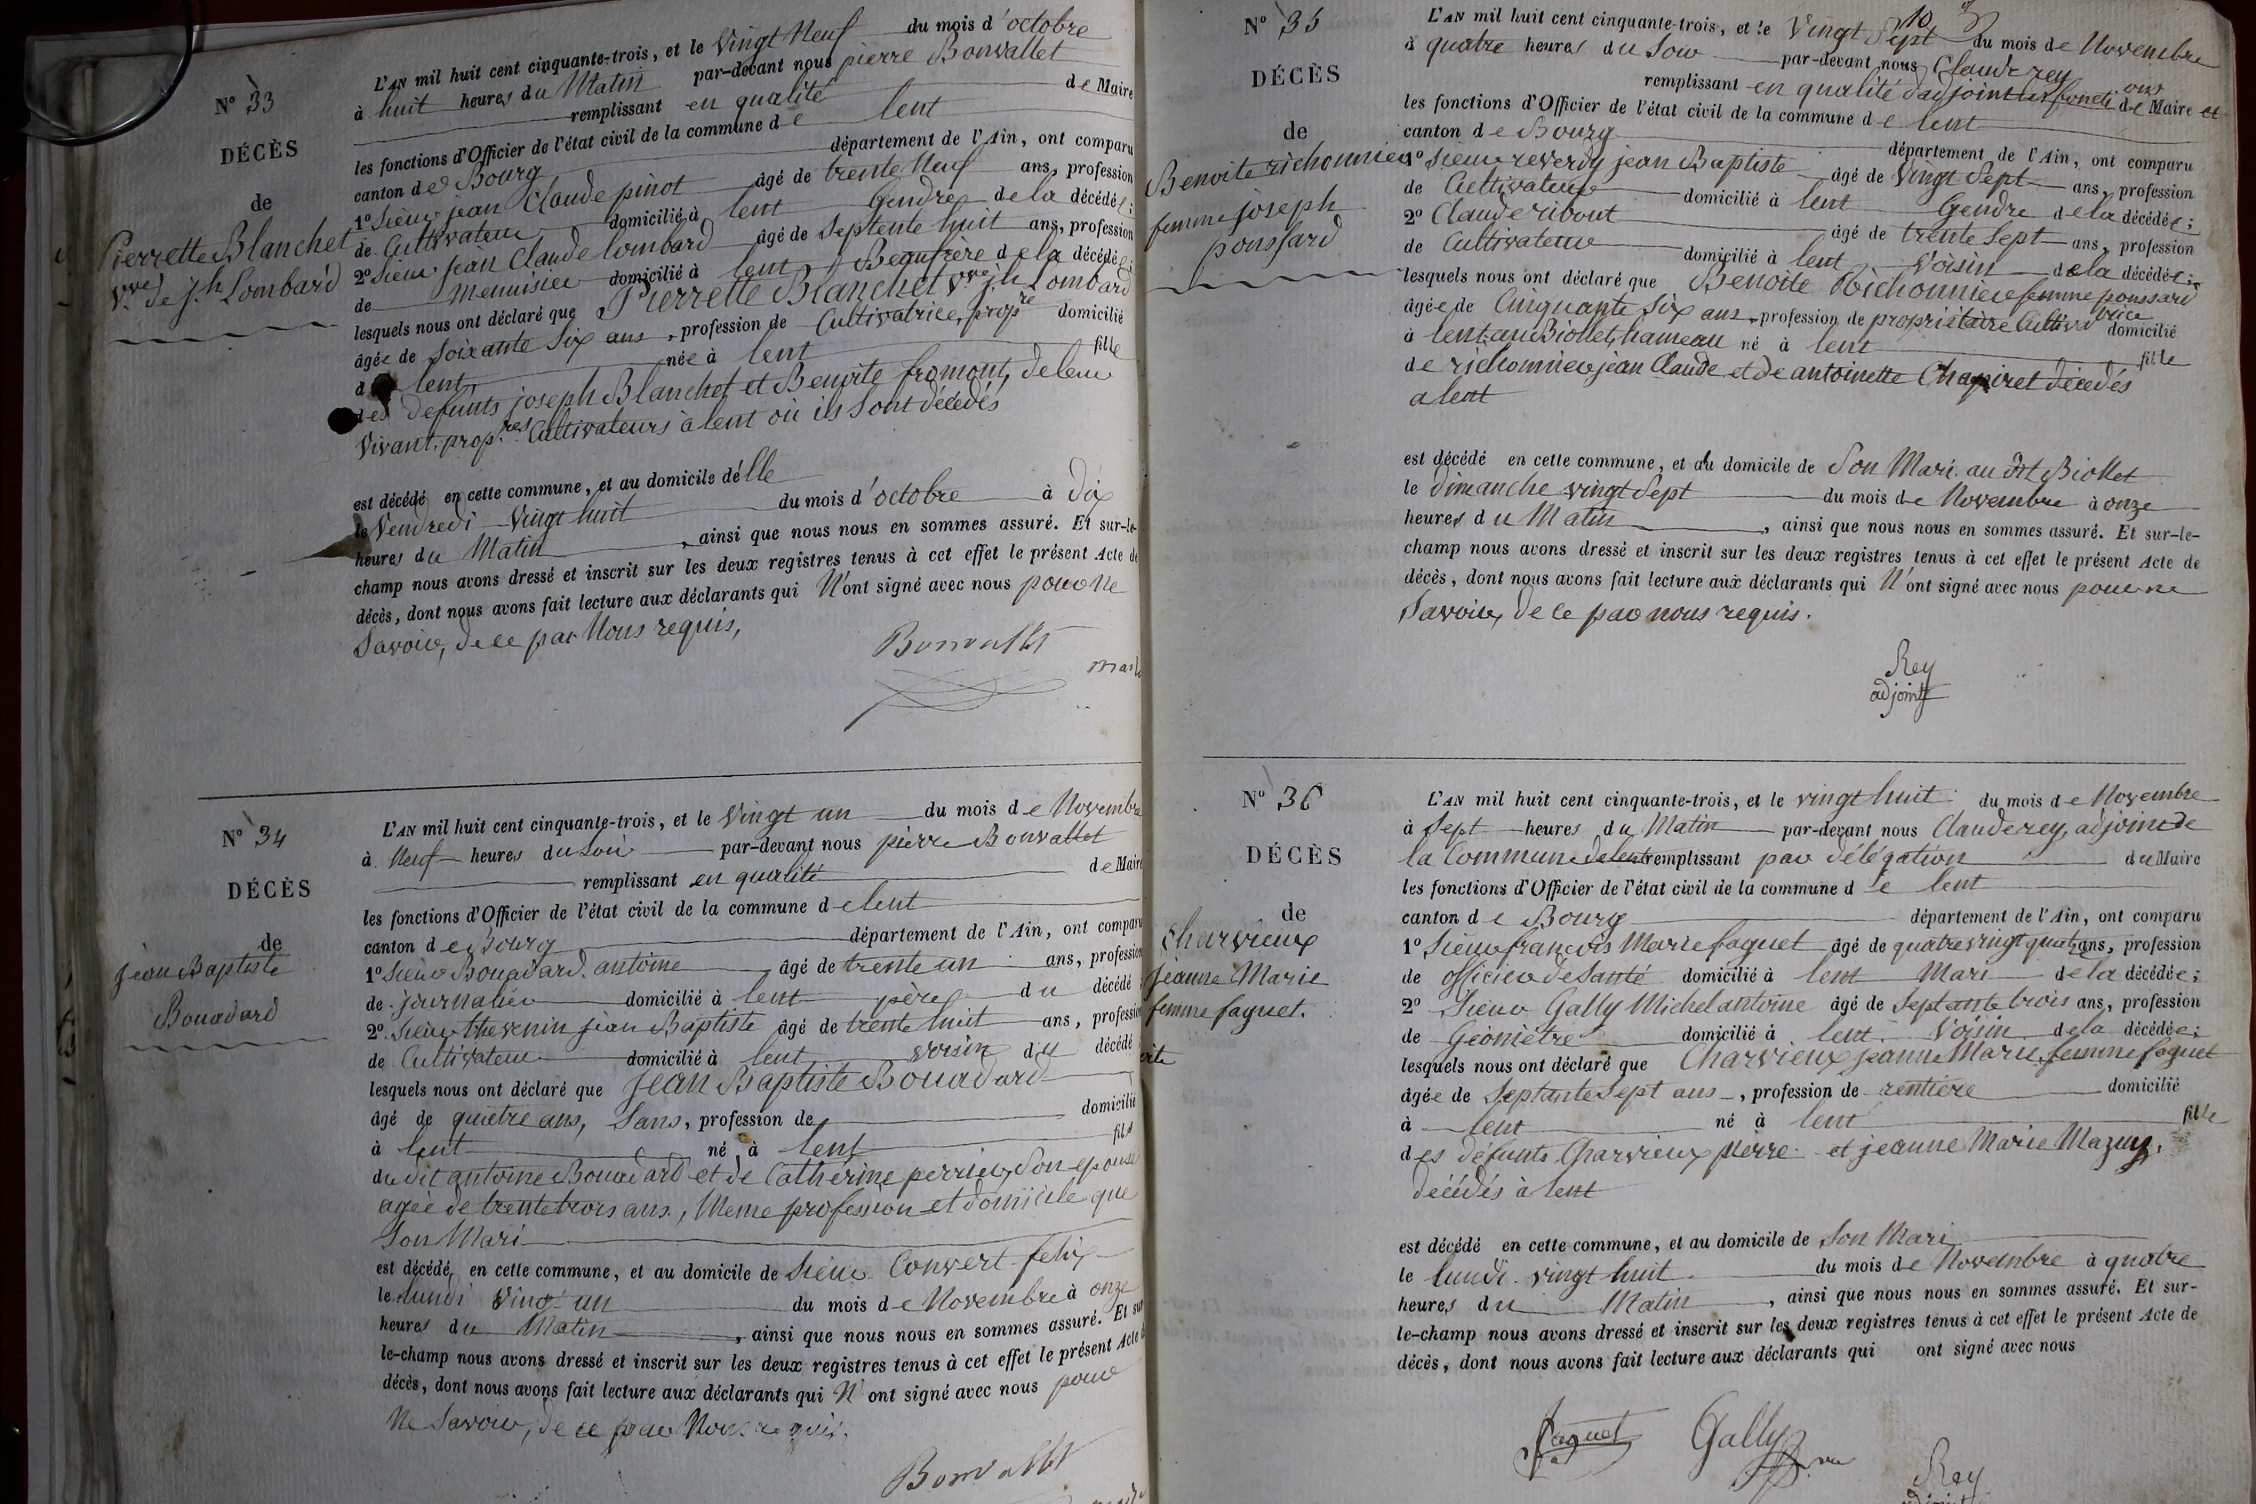 N° 33
DÉCÈS
de
Pierrette Blanchet
Vve de j.h Lombard
L'AN mil huit cent cinquante-trois, et le Vingt Neuf du mois d'octobre
à huit heures du Matin par-devant nous pierre Bonvallet
remplissant en qualité de Maire
les fonctions d'Officier de l'état civil de la commune de lent
canton de Bourg département de l'Ain, ont comparu
1° Sieur jean Claude pinot âgé de trente Neuf ans, profession
de Cultivateur domicilié à lent Gendre de la décédée;
2° Sieur jean Claude lombard âgé de Septente huit ans, profession
de menuisier domicilié à lent Beaufrère de la décédée;
lesquels nous ont déclaré que Pierrette Blanchet Vve j.h Lombard
âgée de Soixante Six ans, profession de Cultivatrice, propre domicilié
d lent née à lent fille
des defunts joseph Blanchet et Benoite fromont, de leur
Vivant, propres Cultivateurs à lent où ils Sont décédés
est décédé en cette commune, et au domicile d'elle
le Vendredi Vingt huit du mois d'octobre à dix
heures du Matin, ainsi que nous nous en sommes assuré. Et sur-le-
champ nous avons dressé et inscrit sur les deux registres tenus à cet effet le présent Acte de
décès, dont nous avons fait lecture aux déclarants qui N'ont signé avec nous pour Ne
Savoir, de ce par Nous requis,
Bonvallet
N° 34
DÉCÈS
de
jean Baptiste
Bouadard
L'AN mil huit cent cinquante-trois, et le Vingt un du mois de Novembre
à Neuf heures du Soir par-devant nous pierre Bonvallet
remplissant en qualité de Maire
les fonctions d'Officier de l'état civil de la commune de lent
canton de Bourg département de l'Ain, ont comparu
1° Sieur Bouadard antoine âgé de trente un ans, profession
de journalier domicilié à lent père du décédé
2° Sieur thevenin jean Baptiste âgé de trente huit ans, profession
de Cultivateur domicilié à lent voisin du décédé
lesquels nous ont déclaré que Jean Baptiste Bouadard
âgé de quatre ans, Sans, profession de domicilié
à lent né à lent fils
du dit antoine Bouadard et de Catherine perrier, Son epouse
agée de trente trois ans, Meme profession et domicile que
Son Mari
est décédé en cette commune, et au domicile de Sieur Convert felix
le lundi Vingt un du mois de Novembre à onze
heures du Matin, ainsi que nous nous en sommes assuré. Et sur
le-champ nous avons dressé et inscrit sur les deux registres tenus à cet effet le présent Acte
décès, dont nous avons fait lecture aux déclarants qui N'ont signé avec nous pour
Ne Savoir, de ce par Nous requis.
Bonvallet
N° 35
DÉCÈS
de
Benoite richonnier
femme joseph
poussard
L'AN mil huit cent cinquante-trois, et le Vingt Sept du mois de Novembre
à quatre heures du Soir par-devant nous Claude rey
remplissant en qualité d'adjoint les fonctions de Maire et
les fonctions d'Officier de l'état civil de la commune de lent
canton de Bourg département de l'Ain, ont comparu
1° Sieur reverdy jean Baptiste âgé de Vingt Sept ans, profession
de Cultivateur domicilié à lent Gendre de la décédée;
2° Claude ribout âgé de trente Sept ans, profession
de Cultivateur domicilié à lent Voisin de la décédée;
lesquels nous ont déclaré que Benoite Richonnier femme poussard
âgée de Cinquante Six ans, profession de propriétaire Cultivatrice domicilié
à lent, au Biollet, hameau né à lent fille
de richonnier jean Claude et de antoinette Chapiret décédés
a lent
est décédé en cette commune, et au domicile de Son Mari au dit Biollet
le dimanche vingt Sept du mois de Novembre à onze
heures du Matin, ainsi que nous nous en sommes assuré. Et sur-le-
champ nous avons dressé et inscrit sur les deux registres tenus à cet effet le présent Acte de
décès, dont nous avons fait lecture aux déclarants qui N'ont signé avec nous pour ne
Savoir, de ce par nous requis.
Rey
adjoint
N° 36
DÉCÈS
de
Charvieux
jeanne Marie
femme faguet.
L'AN mil huit cent cinquante-trois, et le vingt huit du mois de Novembre
à Sept heures du Matin par-devant nous Claude rey, adjoint de
la Commune de lent remplissant par délégation du Maire
les fonctions d'Officier de l'état civil de la commune de lent
canton de Bourg département de l'Ain, ont comparu
1° Sieur francois Marie faguet âgé de quatre vingt quatre ans, profession
de officier de Santé domicilié à lent Mari de la décédée;
2° Sieur Gally Michel antoine âgé de Septante trois ans, profession
de Géomètre domicilié à lent Voisin de la décédée;
lesquels nous ont déclaré que Charvieux jeanne Marie, femme faguet
âgée de Septante Sept ans, profession de rentière domicilié
à lent né à lent fille
des défunts Charvieux pierre et jeanne Marie Mazuy,
décédés à lent
est décédé en cette commune, et au domicile de Son Mari
le lundi vingt huit du mois de Novembre à quatre
heures du Matin, ainsi que nous nous en sommes assuré. Et sur-
le-champ nous avons dressé et inscrit sur les deux registres tenus à cet effet le présent Acte de
décès, dont nous avons fait lecture aux déclarants qui ont signé avec nous
Faguet Gally
Rey